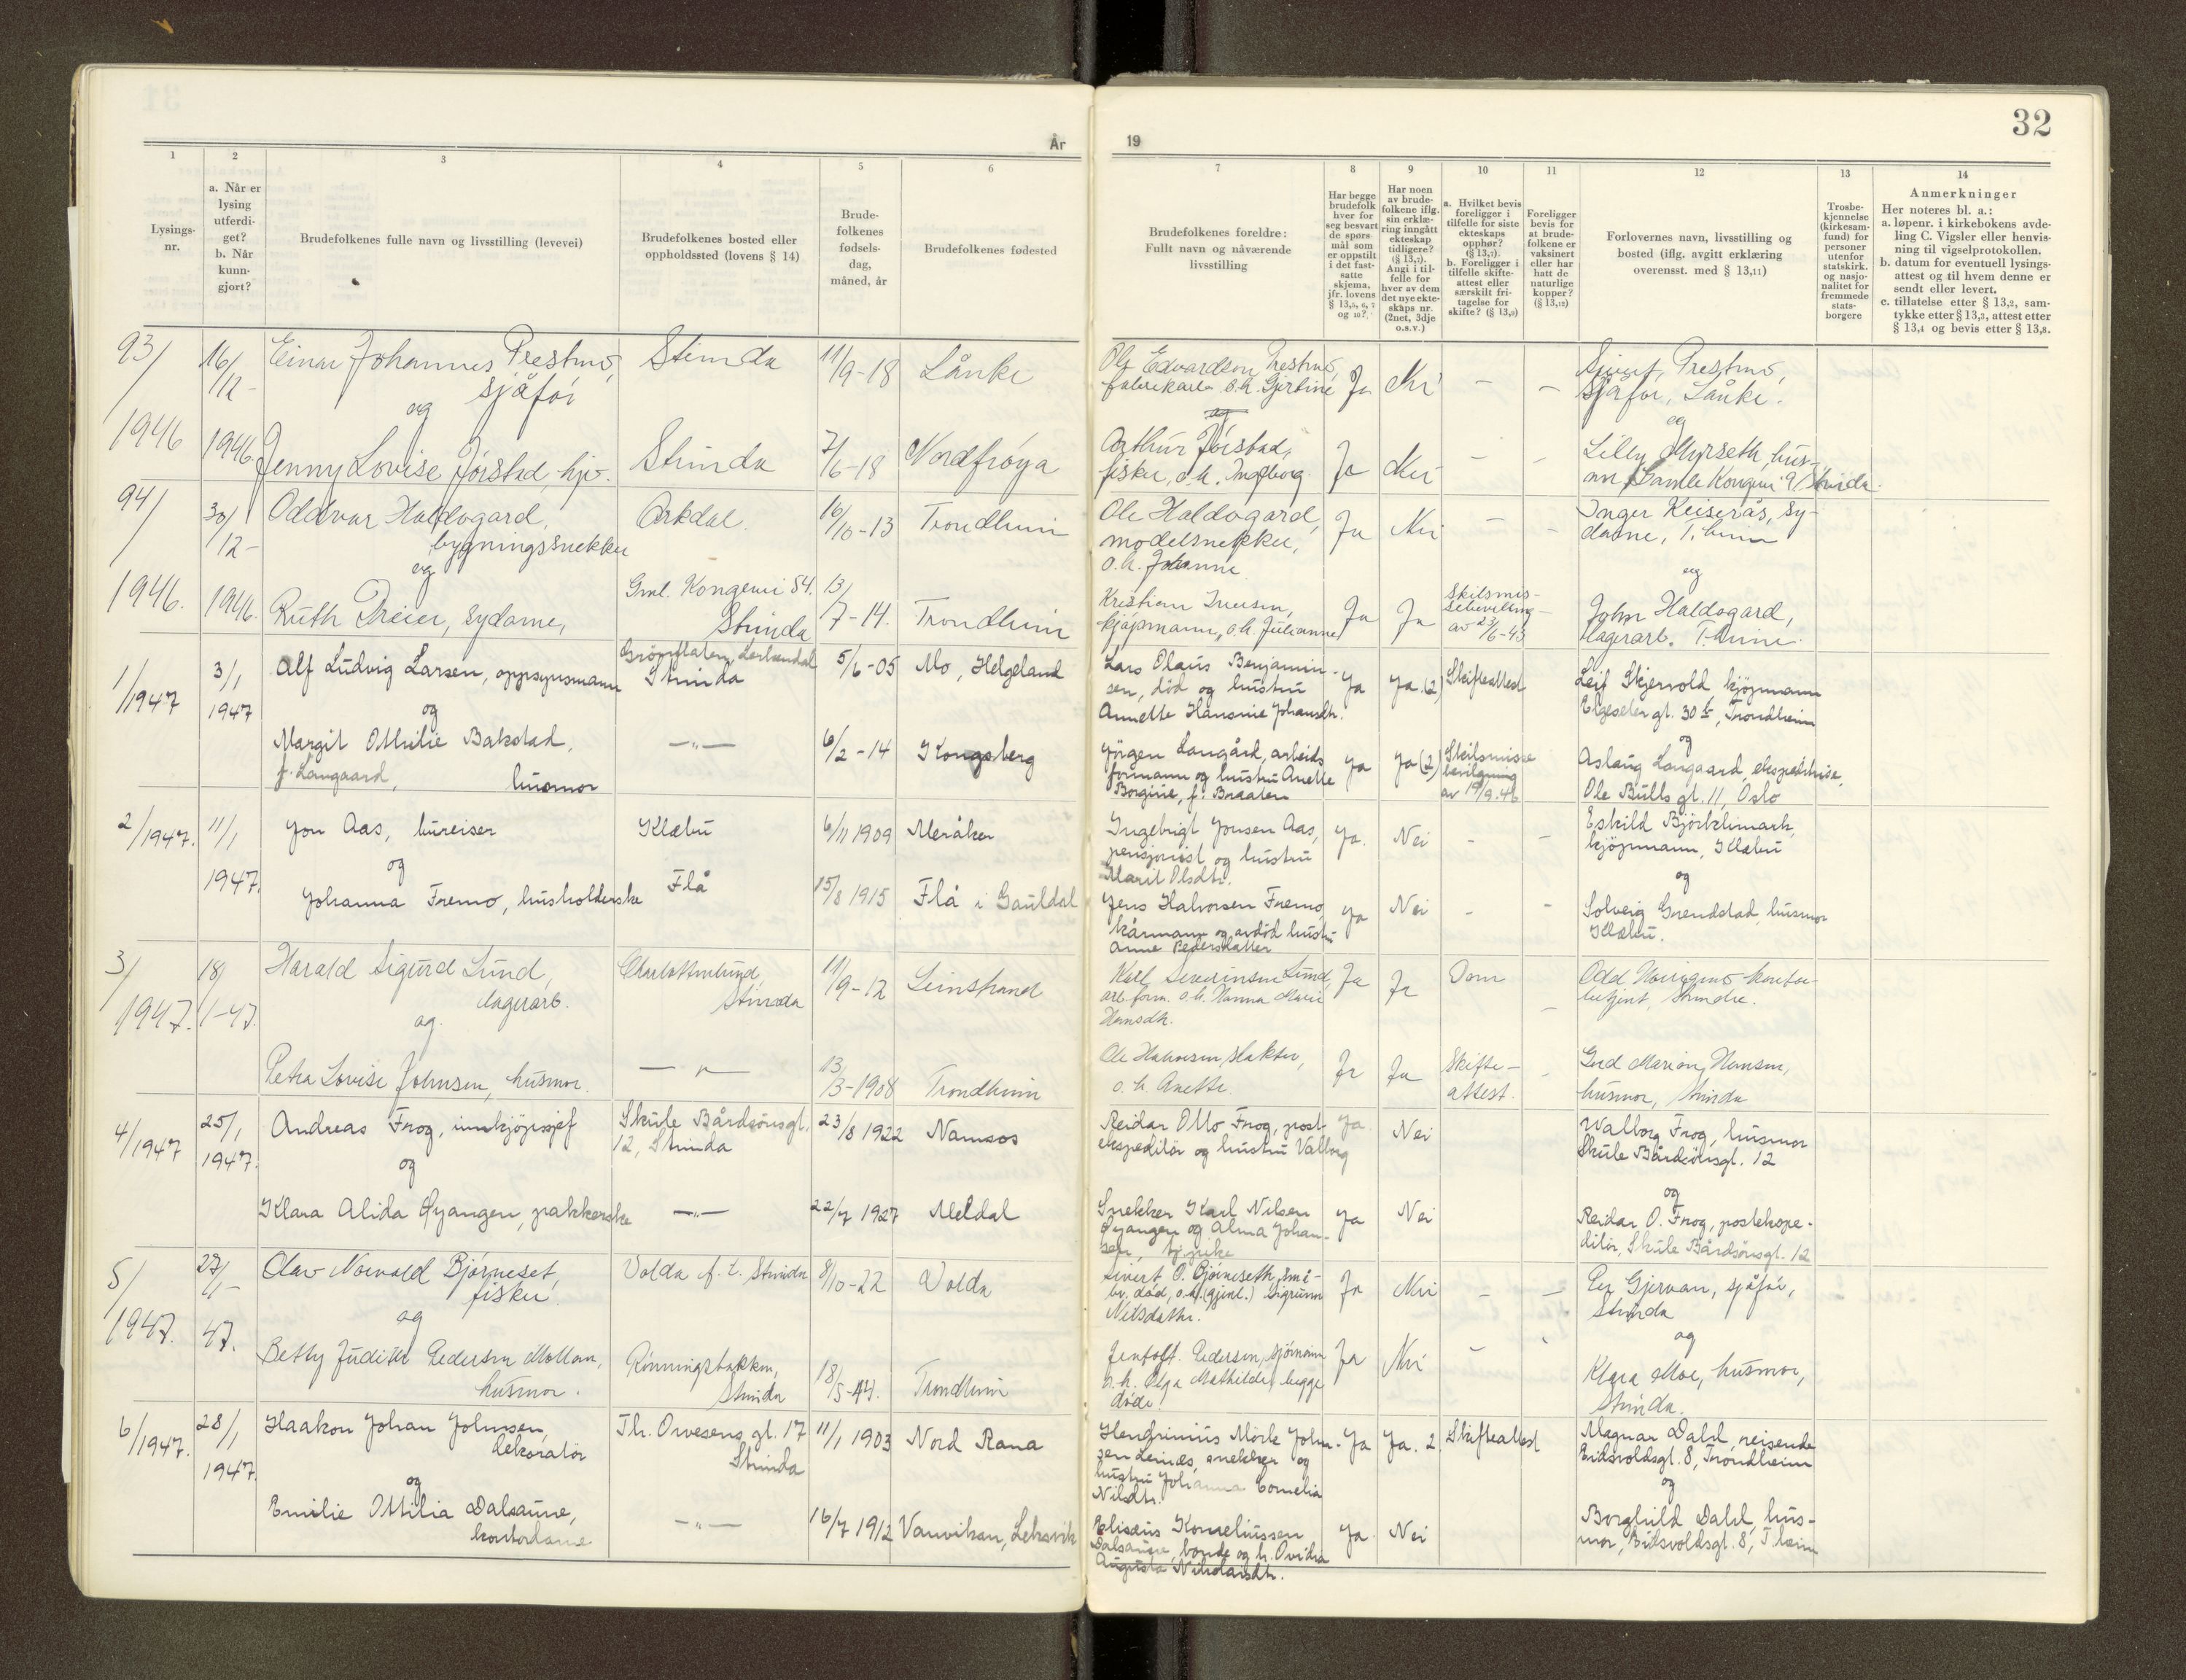 32
År
19
1
Lysings-
nr.
2
a. Når er
lysing
utferdi-
get?
b. Når
kunn-
gjort?
3
Brudefolkenes fulle navn og livsstilling (levevei)
4
Brudefolkenes bosted eller
oppholdssted (lovens § 14)
5
Brude-
folkenes
fødsels-
dag,
måned, år
6
Brudefolkenes fødested
7
Brudefolkenes foreldre:
Fullt navn og nåværende
livsstilling
8
Har begge
brudefolk
hver for
seg besvart
de spørs-
mål som
er oppstilt
i det fast-
satte
skjema,
jfr. lovens
§ 13,5, 6, 7
og 10?
9
Har noen
av brude-
folkene iflg.
sin erklæ-
ring inngått
ekteskap
tidligere?
(§ 13,7).
Angi i til-
felle for
hver av dem
det nye ekte-
skaps nr.
(2net, 3dje
o.s.v.)
10
a. Hvilket bevis
foreligger i
tilfelle for siste
ekteskaps
opphør?
(§ 13,7).
b. Foreligger i
tilfelle skifte-
attest eller
særskilt fri-
tagelse for
skifte? (§ 13,9)
11
Foreligger
bevis for
at brude-
folkene er
vaksinert
eller har
hatt de
naturlige
kopper?
(§ 13,12)
12
Forlovernes navn, livsstilling og
bosted (iflg. avgitt erklæring
overensst. med § 13,11)
13
Trosbe-
kjennelse
(kirkesam-
fund) for
personer
utenfor
statskirk.
og nasjo-
nalitet for
fremmede
stats-
borgere
14
Anmerkninger
Her noteres bl. a.:
a. løpenr. i kirkebokens avde-
ling C. Vigsler eller henvis-
ning til vigselprotokollen.
b. datum for eventuell lysings-
attest og til hvem denne er
sendt eller levert.
c. tillatelse etter § 13,2, sam-
tykke etter § 13,3, attest etter
§ 13,4 og bevis etter § 13,8.
93/
1946
16/12-
1946
Einar Johannes Prestmo,
sjåfør
og
Jenny Lovise Jørstad, hjv.
Strinda
Strinda
11/9-18
7/6-18
Lånke
Nordfrøya
Ole Edvardsen Prestmo,
fabrikarb. o.h. Gjertine
og
Arthur Jørstad,
fisker, o.h. Ingeborg
Ja
Ja
Nei
Nei
Sivert Prestmo,
sjåfør, Lånke.
og
Lilly Myrseth, hus-
mor, Gamle Kongevei 9, Strinda.
94/
1946.
30/12-
1946.
Oddvar Haldogard,
bygningssnekker
og
Ruth Dreier, sydame,
Orkdal.
Gml. Kongevei 54.
Strinda
16/10-13
13/7-14.
Trondheim
Trondheim
Ole Haldogard,
modelsnekker,
o.h. Johanne
Kristian Iversen,
kjøpmann, o.h. Julianne
Ja
Ja
Nei
Ja
Skilsmis-
sebevilling
av 23/6-43
Inger Keiserås, sy-
dame, T.heim
og
John Haldogard,
lagerarb. T.heim.
1/1947
3/1
1947
Alf Ludvig Larsen, oppsynsmann
og
Margit Othilie Bakstad,
f. Langaard, husmor
Strinda
—"—
5/6-05
6/2-14
Mo, Helgeland
Kongsberg
Lars Olaus Benjamin-
sen, död og hustru
Annette Hansine Johansdtr.
Jörgen Langård, arbeids
formann og hustru Anette
Borgine, f. Braaten
Ja
Ja
Ja (2)
Ja (2)
Skifteattest
Skilsmisse
bevilgning
av 19/9.46
Leif Skjervold, kjöpmann
Elgeseter gt. 30 b, Trondheim
og
Aslaug Langaard, ekspeditrise,
Ole Bulls gt. 11, Oslo
2/1947.
11/1
1947.
Jon Aas, bureiser
og
Johanna Fremo, husholderske
Klæbu
Flå
6/11 1909
15/8 1915
Meråker
Flå i Gauldal
Ingebrigt Jonsen Aas,
pensjonist og hustru
Marit Olsdtr.
Jens Halvorsen Fremo,
kårmann og avdöd hustru
Anne Pedersdatter
Ja.
Ja
Nei
Nei
Eskild Björklimark,
kjöpmann, Klæbu
og
Solveig Grendstad, husmor
Klæbu.
3/
1947.
18/
1-47.
Harald Sigurd Lund,
lagerarb.
og
Petra Lovise Johnsen, husmor.
Charlottenlund,
Strinda
— " —
11/9-12
13/3-1908
Leinstrand
Trondheim
Karl Severinsen Lund,
arb.form. o.h. Hanna Marie
Hansdtr.
Ole Halvorsen, slakter,
o.h. Anette
Ja
Ja
Ja
Ja
Dom
Skifte-
attest.
Gerd Marion Hansen,
husmor, Strinda
4/1947
25/1
1947.
Andreas Frog, innkjöpsjef
og
Klara Alida Öyangen, pakkerske
Skule Bårdsönsgt.
12, Strinda
—"—
23/8 1922
22/7 1927
Namsos
Meldal
Reidar Otto Frog, post
ekspeditör og hustru Valborg
Snekker Karl Nilsen
Öyangen og Alma Johan-
sen,
Ja
Ja
Nei
Nei
Valborg Frog, husmor
Skule Bårdsönsgt. 12
og
Reidar O. Frog, postekspe-
ditör, Skule Bårdsönsgt. 12
5/
1947.
27/1-
47.
Olav Norvald Bjørneset,
fisker.
og
Betty Judith Pedersen Moltan,
husmor.
Volda f.t. Strinda
Rönningsbakken,
Strinda
8/10-22
18/5-
Volda
Trondheim
Sivert O. Bjørneseth, små-
br. død, o.h. (gjenl.) Sigrunn
Nilsdattr.
Pedersen, sjømann
o.h. Olga Mathilde, begge
døde!
Ja
Ja
Nei
Nei
Per Gjervan, sjåfør,
Strinda
og
Klara Moe, husmor,
Strinda.
6/1947.
28/1
1947.
Haakon Johan Johnsen,
dekoratör
og
Emilie Ottilia Dalsaune,
kontordame
Th. Owesens gt. 17
Strinda
—"—
11/1 1903
16/7 1912
Nord Rana
Vanvikan, Leksvik
Hendrinius Mörk John-
sen Leinæs, snekker og
hustru Johanna Cornelia
Nilsdtr.
Eliseus Korneliussen
Dalsaune, bonde og h. Ovidia
Augusta Nikolaisdtr.
Ja
Ja.
Ja. 2
Nei
Skifteattest
Magnar Dahl, reisende
Eidsvoldsgt. 8, Trondheim
og
Borghild Dahl, hus-
mor, Eidsvoldsgt. 8, T.heim